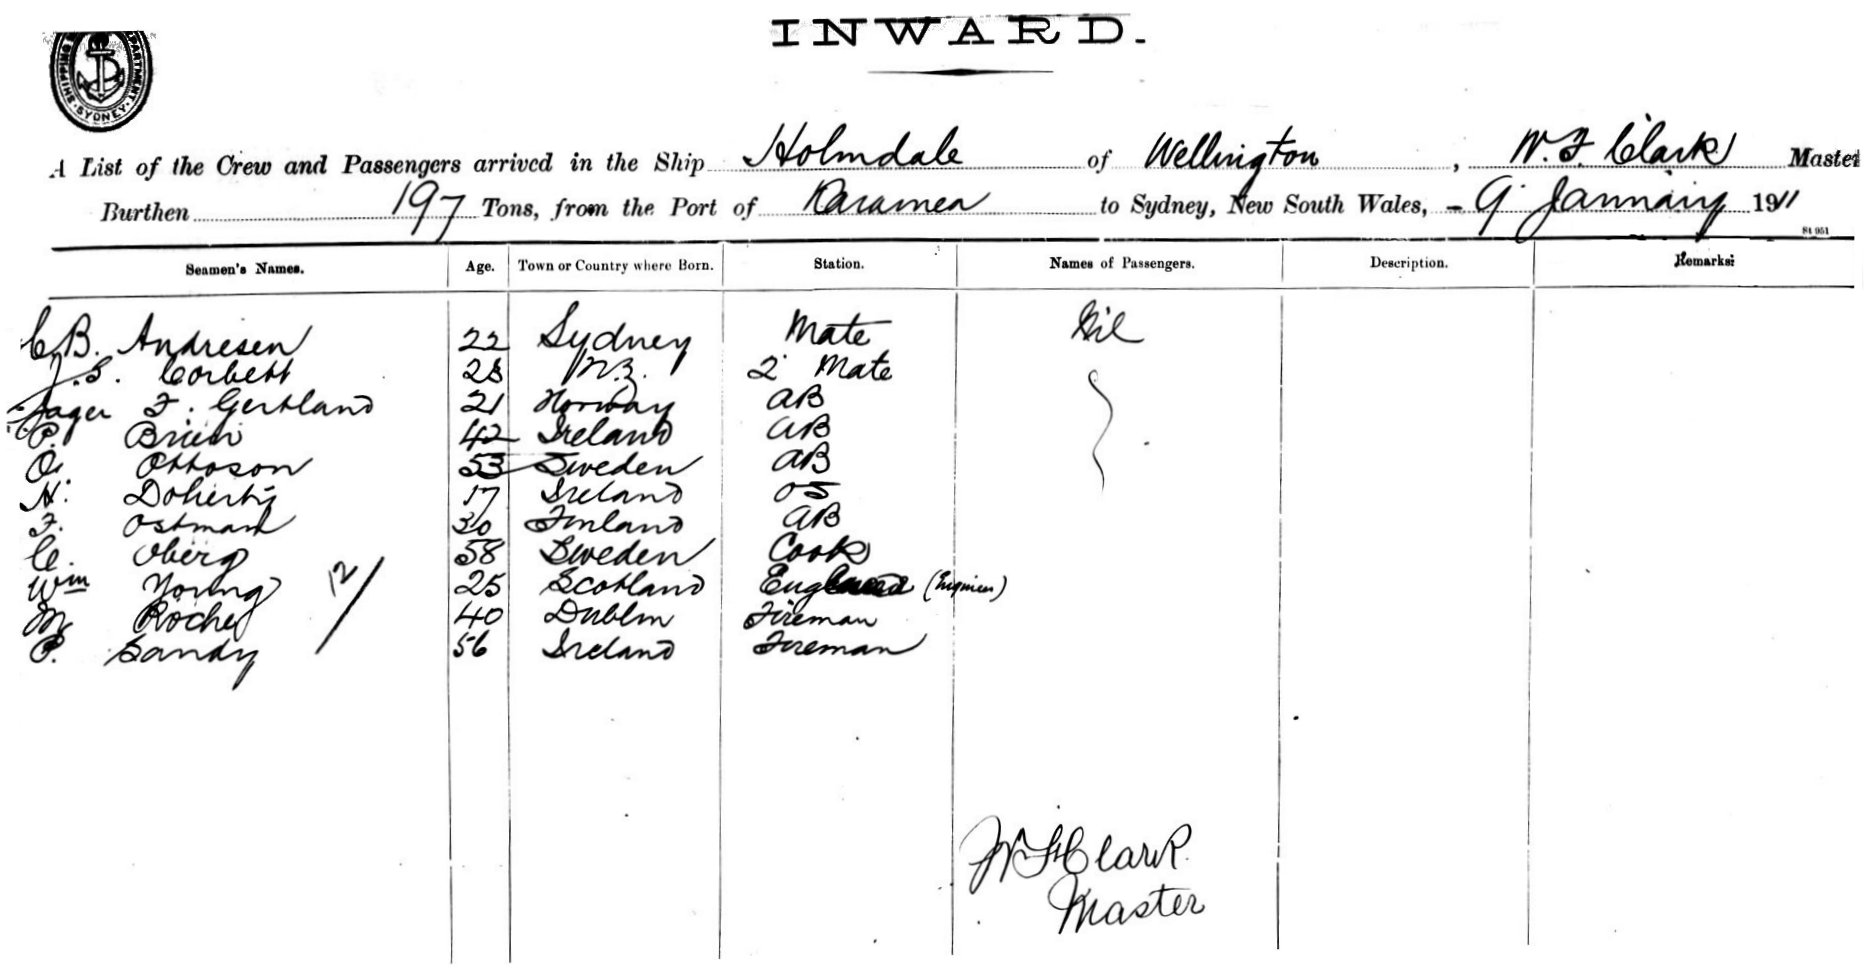 INWARD.
SHIPPING DEPARTMENT. SYDNEY
A List of the Crew and Passengers arrived in the Ship Holmdale of Wellington, W. F. Clark Master
Burthen 197 Tons, from the Port of Karamea to Sydney, New South Wales, - 9 January 1911
St 951
Seamen's Names. Age. Town or Country where Born. Station. Names of Passengers. Description. Remarks:
C. B. Andresen 22 Sydney Mate Nil
J. S. Corbett 28 N.Z. 2 Mate
Jager F. Gertland 21 Norway AB
P. Brien 42 Ireland AB
O. Ottoson 53 Sweden AB
H. Doherty 17 Ireland OS
F. Ostman 30 Finland AB
C. Oberg 58 Sweden Cook
Wm Young 25 Scotland (Engineer)
M Roche 40 Dublin Fireman
P. Sandy 56 Ireland Fireman
12
W F Clark
Master